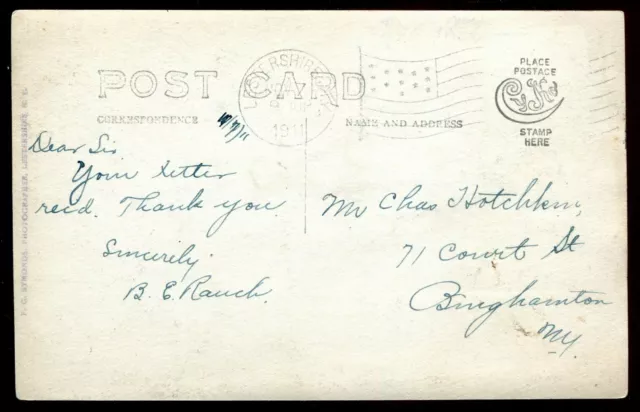 POST CARD
CORRESPONDENCE
NAME AND ADDRESS
PLACE
POSTAGE
STAMP
HERE
LESTERSHIRE
1911
10/7/11
Dear Sir
Your Letter
recd. Thank you.
Sincerely
B. E. Rauch.
Mr Chas Hotchkin,
71 Court St
Binghamton
NY.
PHOTOGRAPHER, LESTERSHIRE, N. Y.